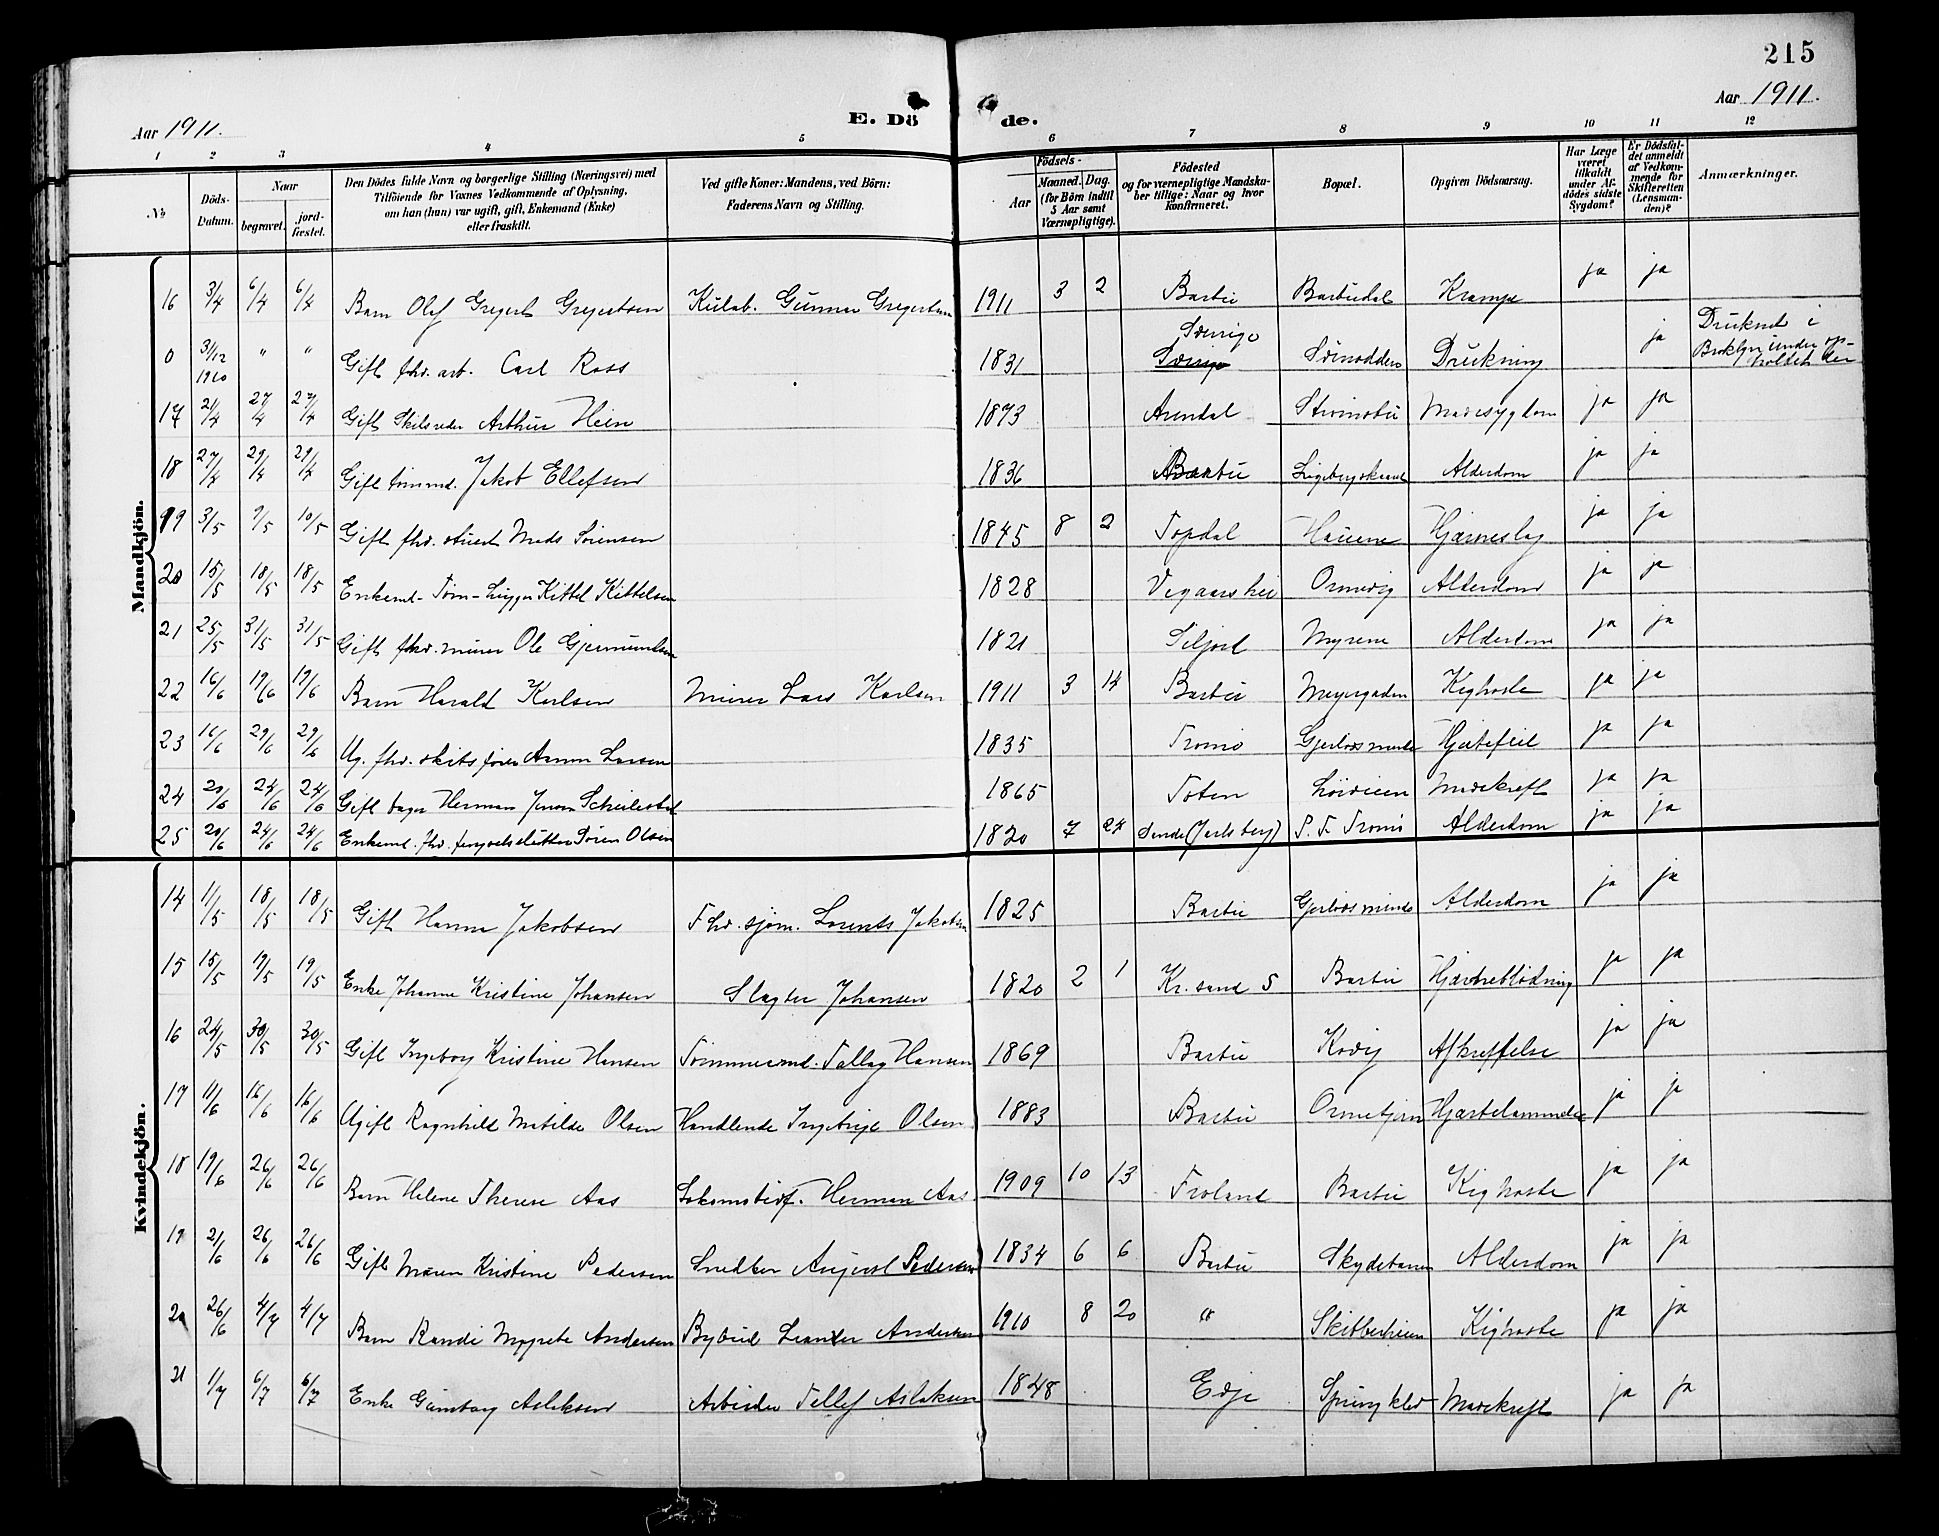 215
Aar 1911.
E. Dö
de.
Aar 1911.
1 2 3 4 5 6 7 8 9 10 11 12
No
Döds-Datum.
Naar begravet. jordfæstet.
Den Dödes fulde Navn og borgerlige Stilling (Næringsvei) med
Tilföiende for Voxnes Vedkommende af Oplysning,
om han (hun) var ugift, gift, Enkemand (Enke)
eller fraskilt.
Ved gifte Koner: Mandens, ved Börn:
Faderens Navn og Stilling.
Födsels-
Aar Maaned. Dag.
(for Börn indtil 5 Aar samt Værnepligtige).
Födested
og for værnepligtige Mandskaber tillige: Naar og hvor Konfirmeret.
Bopæl.
Opgiven Dödsaarsag.
Har Læge været tilkaldt under Afdödes sidste Sygdom?
Er Dödsfaldet anmeldt af Vedkommende for Skifteretten (Lensmanden)?
Anmærkninger.
Mandkjön.
16 3/4 6/4 6/4 Barn Olaf Gregert Gregertsen Kulab. Gunnar Gregertsen 1911 3 2 Barbu Barbudal Krampe ja ja
0 31/12 1910 " " Gift fhv. arb. Carl Ross 1831 Sverige Drukning ja Druknet i
17 21/4 27/4 27/4 Gift Arthur Hein 1873 Arendal Strømsbu Mavesygdom ja ja
18 27/4 29/4 29/4 Gift tømmd. Jakob Ellefsen 1836 Barbu Alderdom ja ja
19 3/5 9/5 10/5 Gift fhv. stuert Mads Sørensen 1845 8 2 Topdal Hauene Hjærneslag ja ja
20 15/5 18/5 18/5 Enkemd. Kittel Kittelsen 1828 Vegaarshei Ormevig Alderdom ja ja
21 25/5 31/5 31/5 Gift fhv. murer Ole Gjermundsen 1821 Siljord Myrene Alderdom ja ja
22 16/6 19/6 19/6 Barn Harald Karlsen Murer Lars Karlsen 1911 3 14 Barbu Meyergaden Kighoste ja ja
23 16/6 29/6 29/6 Ug. fhv. skibsfører Larsen 1835 Tromø Gjerløsminde Hjertefeil ja ja
24 20/6 24/6 24/6 Gift bager Herman 1865 Toten Mavekreft ja ja
25 20/6 24/6 24/6 Enkemd. fhv. fengselslutter Søren Olsen 1820 7 24 Sende (Jarlsberg) P. T. Tromø Alderdom ja ja
Kvindekjön.
14 11/5 18/5 18/5 Gift Hanna Jakobsen Fhv. sjøm. Lorents Jakobsen 1825 Barbu Gjerløsminde Alderdom ja ja
15 15/5 19/5 19/5 Enke Johanne Kristine Johansen Slagter Johansen 1820 2 1 Kr.sand S Barbu ja ja
16 24/5 30/5 30/5 Gift Ingeborg Kristine Hansen Tømmermd. Tallag Hansen 1869 Barbu Afkreftelse ja ja
17 11/6 16/6 16/6 Ugift Ragnhild Matilde Olsen Handlende Olsen 1883 Barbu Ormetjern Hjærtelammelse ja ja
18 19/6 26/6 26/6 Barn Helene Therese Aas Lokomotivf. Herman Aas 1909 10 13 Froland Barbu Kighoste ja ja
19 21/6 26/6 26/6 Gift Maren Kristine Pedersen Snedker August Pedersen 1834 6 6 Barbu Skydebanen Alderdom ja ja
20 26/6 4/7 4/7 Barn Randi Margrete Andersen Bybud Leander Andersen 1910 8 20 " Skibberheien Kighoste ja ja
21 1/7 6/7 6/7 Enke Gunborg Aslaksen Arbeider Tellef Aslaksen 1848 Evje Springklev Mavekreft ja ja